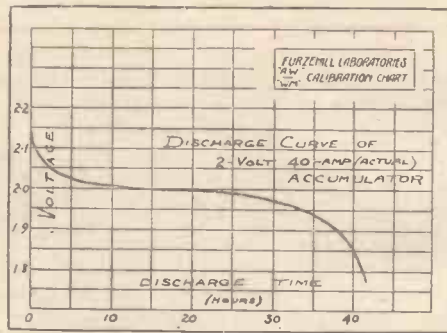 FURZEHILL LABORATORIES
"A.W."
"W.M." CALIBRATION CHART
DISCHARGE CURVE OF
2-VOLT 40-AMP (ACTUAL)
ACCUMULATOR
VOLTAGE
2.2
2.1
2.0
1.9
1.8
DISCHARGE TIME
(HOURS)
0 10 20 30 40